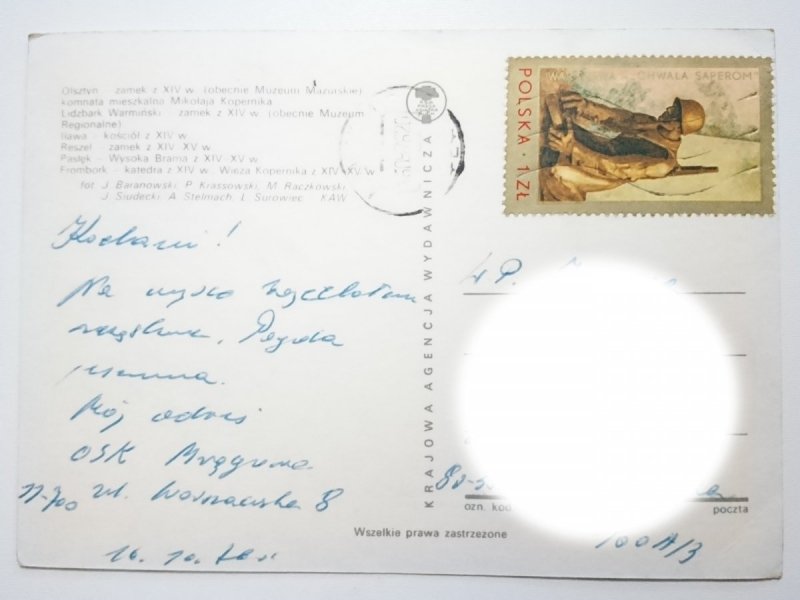 Olsztyn - zamek z XIV w. (obecnie Muzeum Mazurskie)
komnata mieszkalna Mikołaja Kopernika
Lidzbark Warmiński - zamek z XIV w. (obecnie Muzeum
Regionalne)
Iława - kościół z XIV w.
Reszel - zamek z XIV-XV w.
Pasłęk - Wysoka Brama z XIV-XV w.
Frombork - katedra z XIV w., Wieża Kopernika z XIV-XV w.
fot. J. Baranowski, P. Krassowski, M. Raczkowski,
J. Siudecki, A. Stelmach, L. Surowiec KAW
Kochani!
Na wyspo
Pogoda
Mój adres
OSK Mrągowo
11-700 ul. Warszawska 8
KRAJOWA AGENCJA WYDAWNICZA
CHWAŁA SAPEROM
POLSKA · 1 ZŁ
W P.
80-
ozn. kod
poczta
100A/3
Wszelkie prawa zastrzeżone